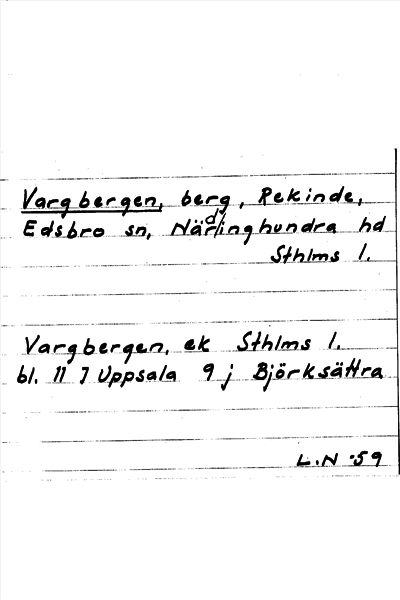 Vargbergen, berg, Rekinde,
Edsbro sn, Närdinghundra hd
Sthlms l.
Vargbergen, ek Sthlms l.
bl. 11 I Uppsala 9 j Björksättra
L.N -59